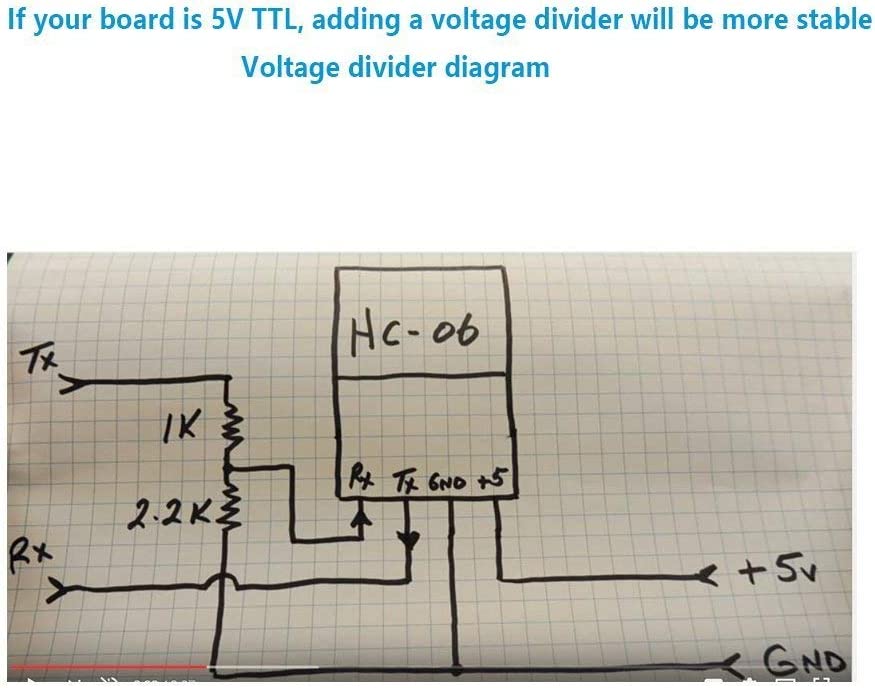 If your board is 5V TTL, adding a voltage divider will be more stable
Voltage divider diagram
HC-06
Tx
1K
Rx Tx GND +5
2.2K
Rx
+5v
GND